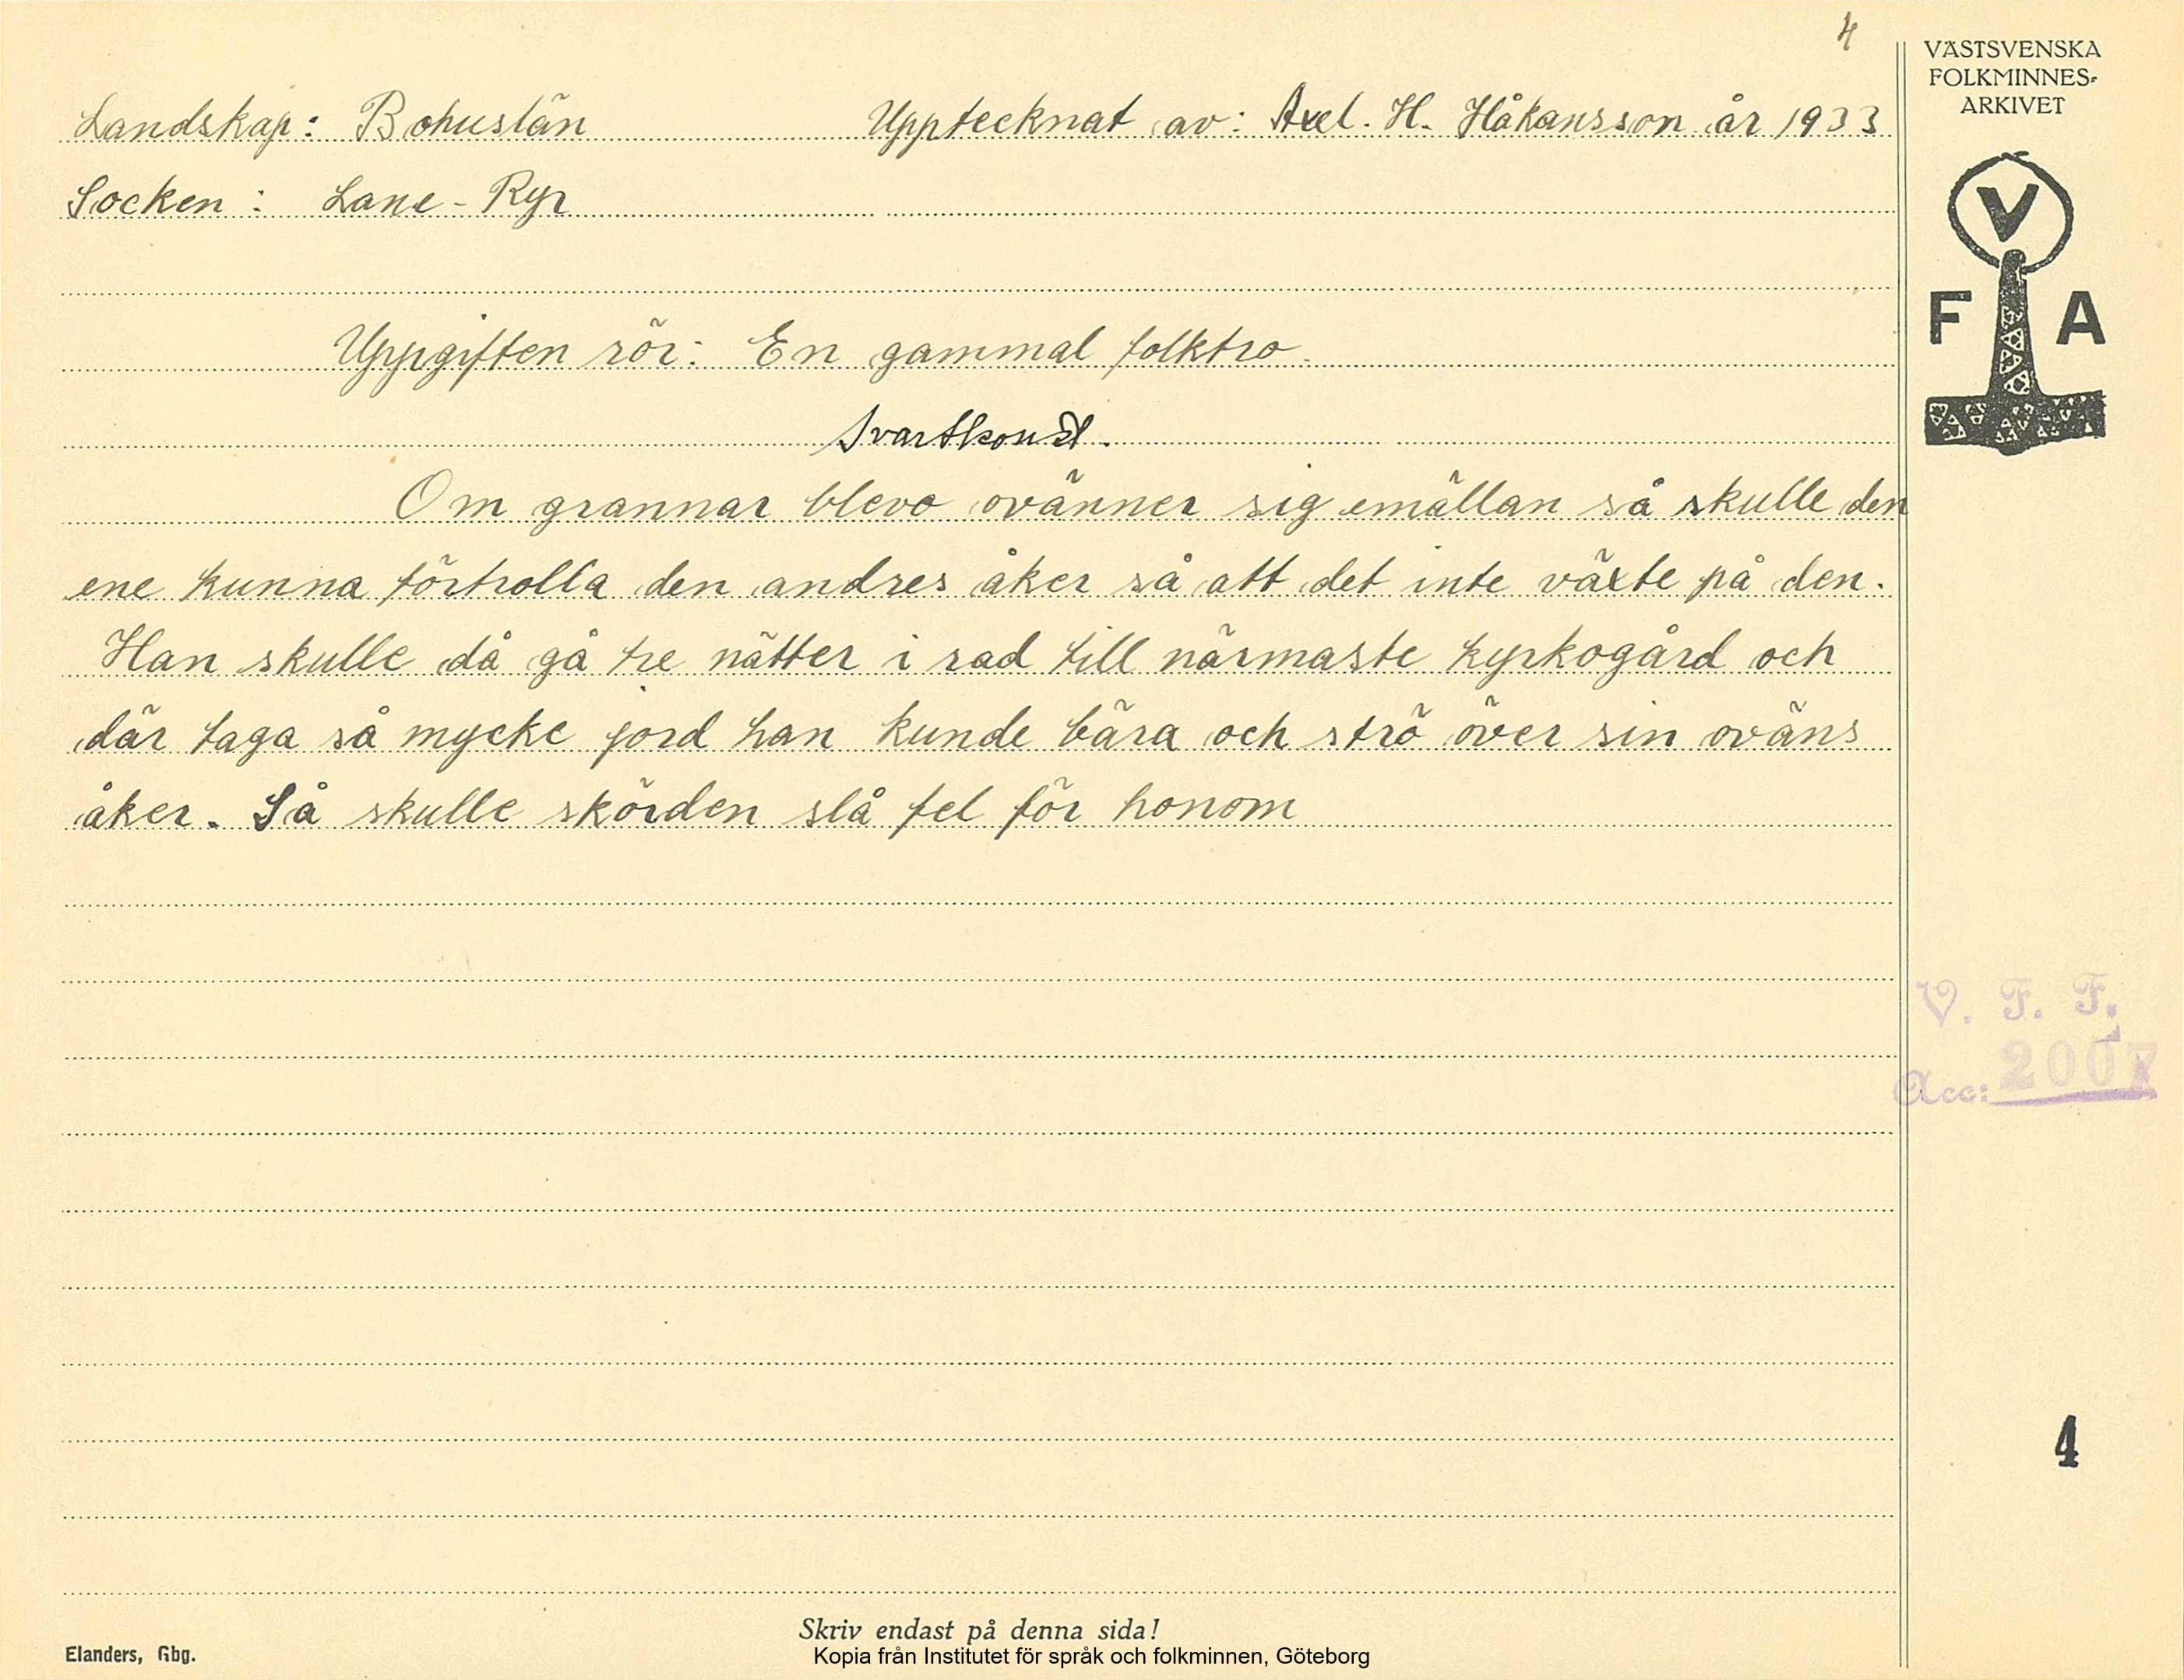 4
VÄSTSVENSKA
FOLKMINNES-
ARKIVET
Landskap: Bohuslän Upptecknat av: Axel. H. Håkansson år 1933
Socken: Lane-Ryr
V
F A
Uppgiften rör: En gammal folktro.
Svartkonst.
Om grannar blevo ovänner sig emällan så skulle den
ene kunna förtrolla den andres åker så att det inte växte på den.
Han skulle då gå tre nätter i rad till närmaste kyrkogård och
där taga så mycke jord han kunde bära och strö över sin oväns
åker. Så skulle skörden slå fel för honom
V. F. F.
Acc: 2007
4
Skriv endast på denna sida!
Elanders, Gbg.
Kopia från Institutet för språk och folkminnen, Göteborg